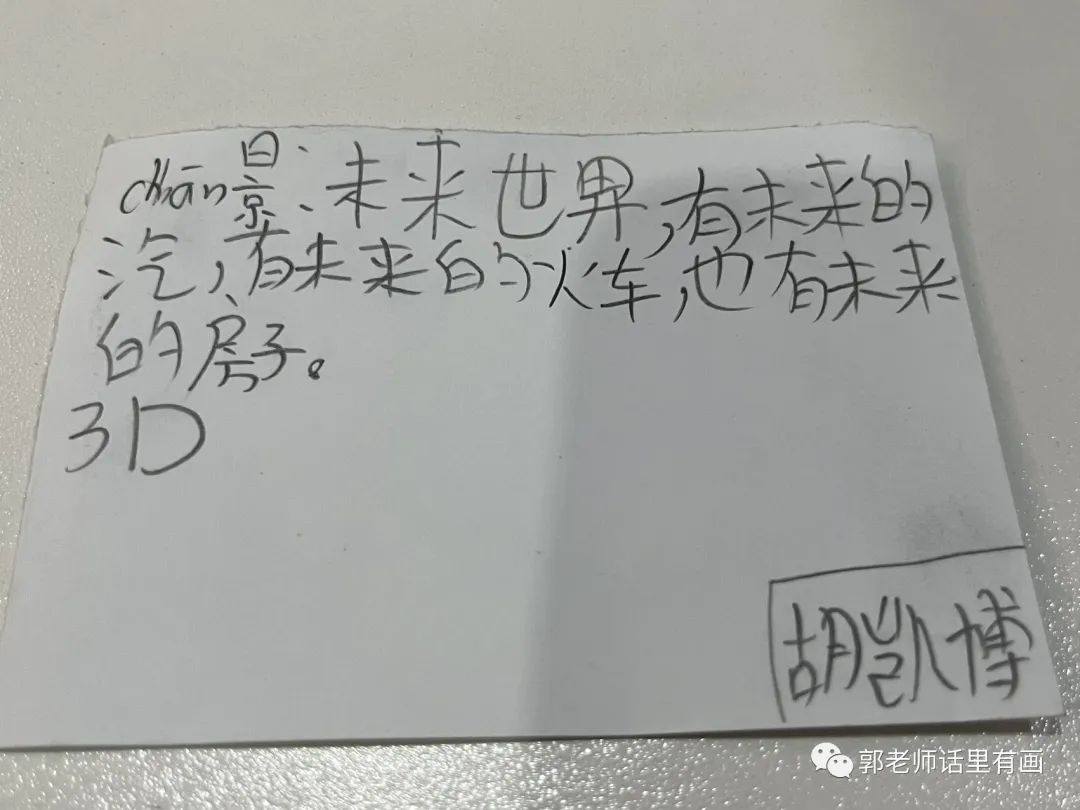 chǎn景:未来世界,有未来的
汽,有未来的火车,也有未来
的房子。
3D
胡凯博
郭老师话里有画